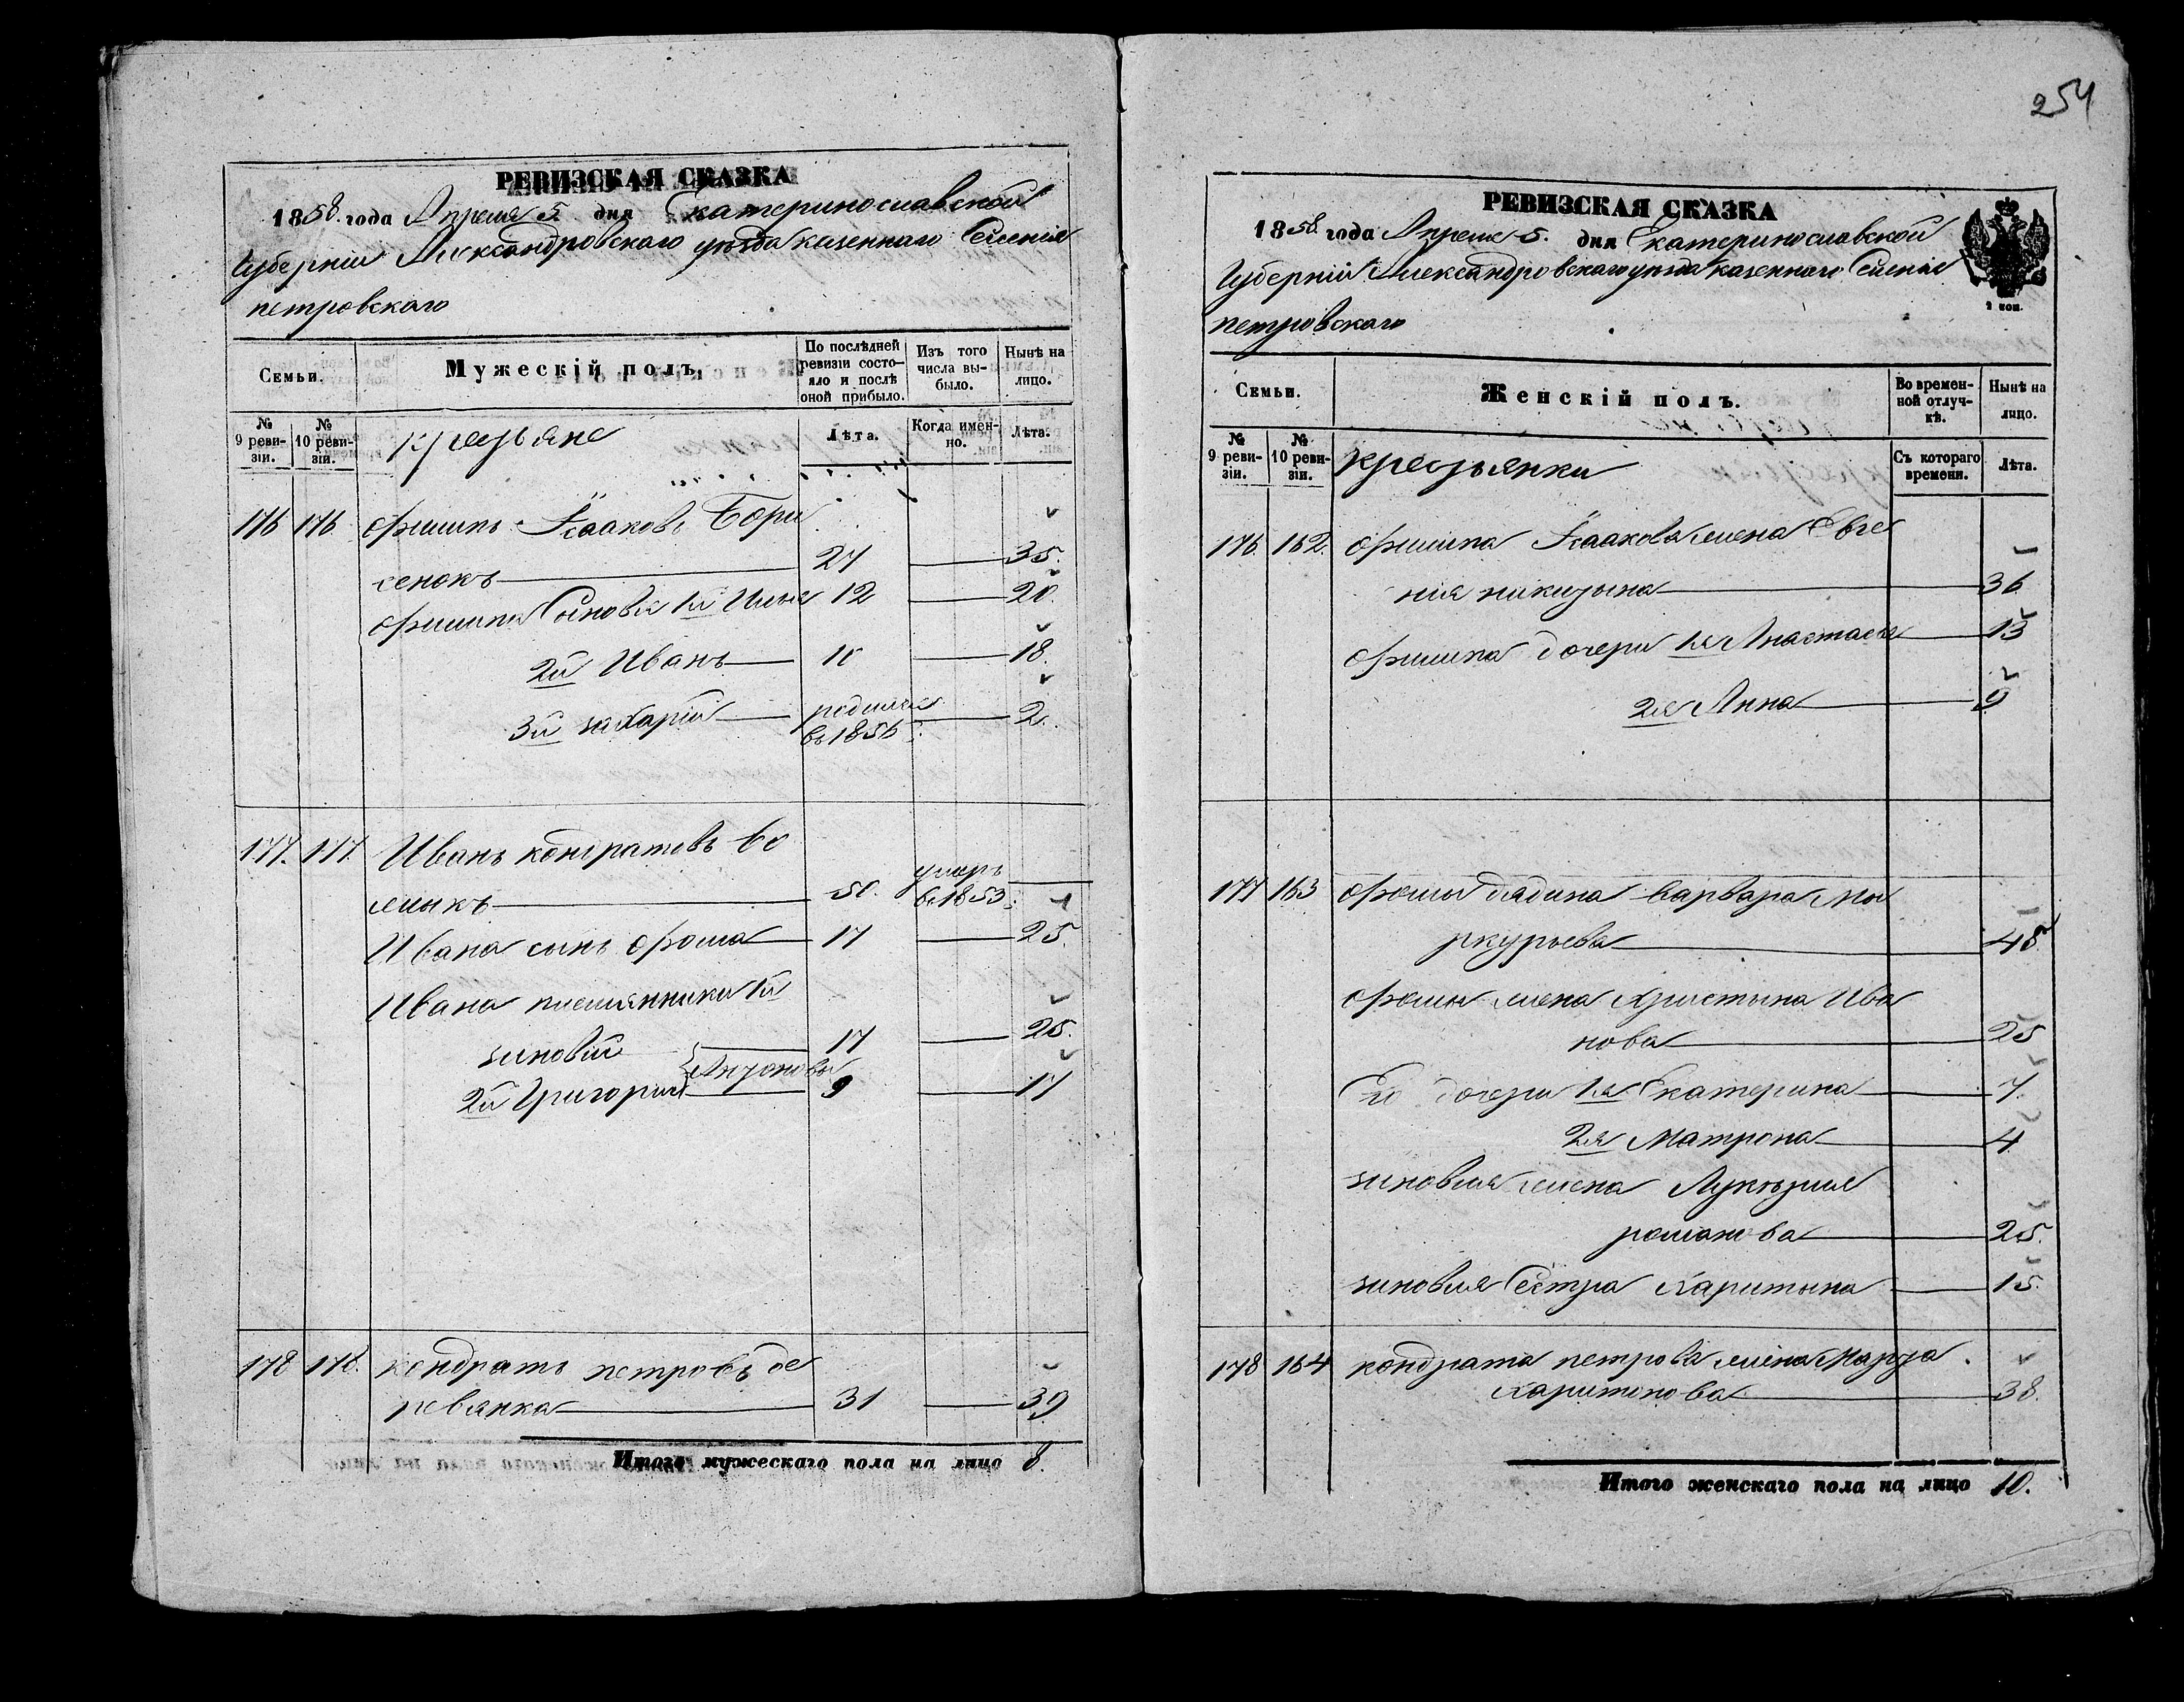 254
РЕВИЗСКАЯ СКАЗКА
1858 года Апреля 5 дня Екатеринославской
Губерніи Александровскаго уѣзда казеннаго Селенія
петровскаго
Семьи.
Мужескій полъ.
По послѣдней ревизіи состояло и послѣ оной прибыло.
Изъ того числа выбыло.
Нынѣ на лицо.
№ 9 ревизіи.
№ 10 ревизіи.
крестьяне
Лѣта.
Когда именно.
Лѣта.
176 176 Филипъ Исааковъ Бори
сенокъ 27 35.
Филипа Сыновья 1й Илья 12 20.
2й Иванъ 10 18.
3й захарій родился въ 1856 2.
177. 177. Иванъ кондратовъ Во
ликъ 50. умеръ въ 1853
Ивана сынъ Фома 17 25.
Ивана племянники 1й
зиновій 17 25.
Антоновы
2й Григорій 9 17
178 178. кондратъ петровъ де
ревянка 31 39
Итого мужескаго пола на лицо 8.
РЕВИЗСКАЯ СКАЗКА
1858 года Апреля 5. дня Екатеринославской
Губерніи Александровскаго уѣзда казеннаго Селенія
петровскаго
2 коп.
Семьи.
Женскій полъ.
Во временной отлучкѣ.
Нынѣ на лицо.
№ 9 ревизіи.
№ 10 ревизіи.
крестьянки
Съ котораго времени.
Лѣта.
176 162. Филипа Исаакова жена Евге
нія никитына 36
Филипа дочери 1я Анастасья 13
2я Анна 9
177 163 Фомы дядина варвара Мы
ркурьева 48
Фомы жена Христына Ива
нова 25
Его дочери 1я Екатерина 7.
2я Матрона 4
зиновия жена Лукѣрия
романова 25.
зиновия Сестра Харитына 15.
178 164 кондрата петрова жена Марѳа
Харитонова 38.
Итого женскаго пола на лицо 10.